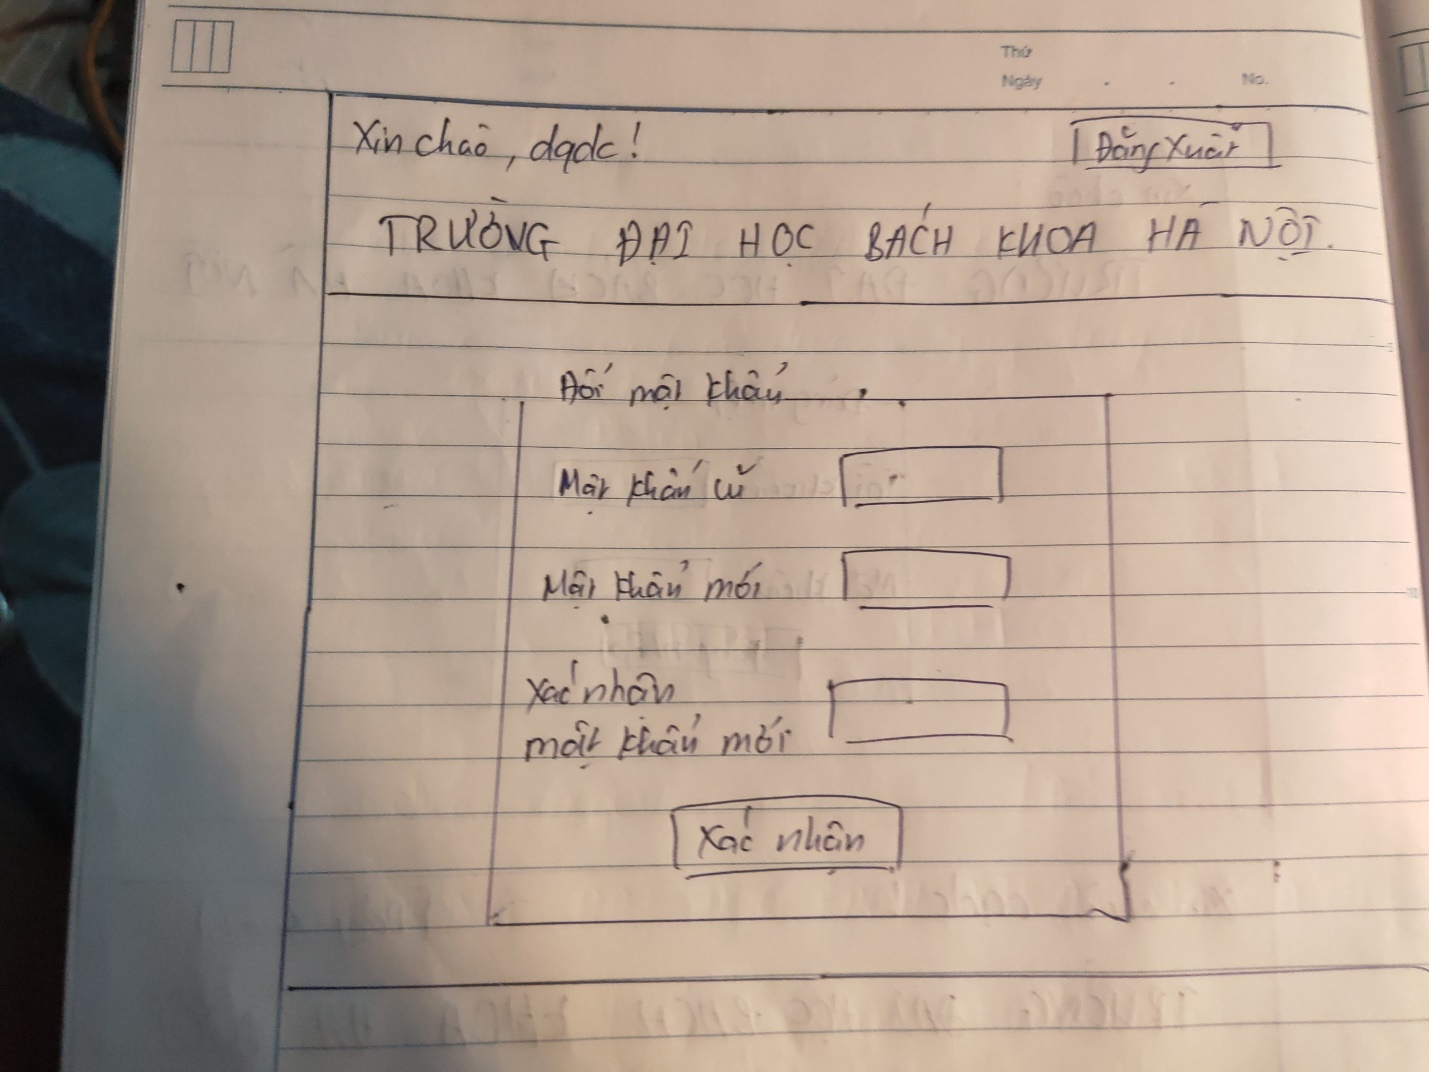 Thứ
Ngày No.
Xin chào, dqdc!
Đăng Xuất
TRƯỜNG ĐẠI HỌC BÁCH KHOA HÀ NỘI.
Đổi mật khẩu
Mật khẩu cũ
Mật khẩu mới
Xác nhận
mật khẩu mới
Xác nhận